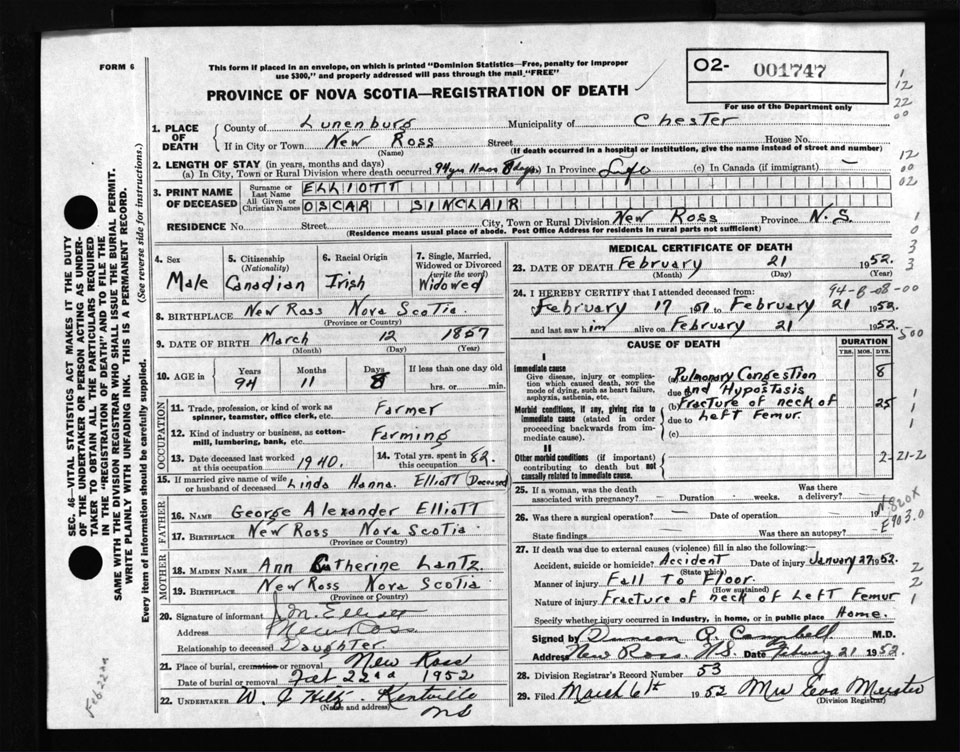 FORM 6
This form if placed in an envelope, on which is printed "Dominion Statistics—Free, penalty for improper
use $300," and properly addressed will pass through the mail "FREE"
O2- 001747
PROVINCE OF NOVA SCOTIA—REGISTRATION OF DEATH
For use of the Department only
1. PLACE OF DEATH
County of Lunenburg Municipality of Chester
If in City or Town New Ross Street House No.
(Name) (If death occurred in a hospital or institution, give the name instead of street and number)
2. LENGTH OF STAY (in years, months and days)
(a) In City, Town or Rural Division where death occurred 94yrs 11mos 8days (b) In Province Life (c) In Canada (if immigrant) —
3. PRINT NAME OF DECEASED
Surname or Last Name ELLIOTT
All Given or Christian Names OSCAR SINCLAIR
RESIDENCE No. Street City, Town or Rural Division New Ross Province N.S.
(Residence means usual place of abode. Post Office Address for residents in rural parts not sufficient)
4. Sex Male
5. Citizenship (Nationality) Canadian
6. Racial Origin Irish
7. Single, Married, Widowed or Divorced (write the word) Widowed
8. BIRTHPLACE New Ross Nova Scotia.
(Province or Country)
9. DATE OF BIRTH March 12 1857
(Month) (Day) (Year)
10. AGE in Years 94 Months 11 Days 8 If less than one day old hrs. or min.
OCCUPATION
11. Trade, profession, or kind of work as spinner, teamster, office clerk, etc. Farmer
12. Kind of industry or business, as cotton-mill, lumbering, bank, etc. Farming
13. Date deceased last worked at this occupation 1940.
14. Total yrs. spent in this occupation 82.
15. If married give name of wife or husband of deceased Linda Hanna. Elliott (Deceased)
FATHER
16. NAME George Alexander Elliott
17. BIRTHPLACE New Ross Nova Scotia
(Province or Country)
MOTHER
18. MAIDEN NAME Ann Catherine Lantz
19. BIRTHPLACE New Ross Nova Scotia
(Province or Country)
20. Signature of informant M. Elliott
Address New Ross
Relationship to deceased Daughter.
21. Place of burial, cremation or removal New Ross
Date of burial or removal Feb 22nd 1952
22. UNDERTAKER Kentville NS
(Name and address)
MEDICAL CERTIFICATE OF DEATH
23. DATE OF DEATH February 21 1952.
(Month) (Day) (Year)
24. I HEREBY CERTIFY that I attended deceased from: 94-B-08-00
February 17 1951 to February 21 1952.
and last saw him alive on February 21 1952
CAUSE OF DEATH
DURATION
YRS. MOS. DYS.
I
Immediate cause
Give disease, injury, or complication which caused death, NOT the mode of dying, such as heart failure, asphyxia, asthenia, etc.
(a) Pulmonary Congestion 8
due to and Hypostasis
Morbid conditions, if any, giving rise to immediate cause (stated in order proceeding backwards from immediate cause).
(b) Fracture of neck of 25
due to Left Femur.
(c)
II
Other morbid conditions (if important) contributing to death but not causally related to immediate cause.
2-21-2
25. If a woman, was the death associated with pregnancy? — Duration weeks. Was there a delivery? —
26. Was there a surgical operation? — Date of operation 19
State findings — Was there an autopsy?
N820X
E903.0
27. If death was due to external causes (violence) fill in also the following:—
Accident, suicide or homicide? Accident Date of injury January 27 1952.
(State which)
Manner of injury Fall To Floor.
(How sustained)
Nature of injury Fracture of neck of Left Femur
Specify whether injury occurred in industry, in home, or in public place Home.
Signed by Duncan R. Campbell M.D.
Address New Ross. N.S. Date February 21 1952.
28. Division Registrar's Record Number 53
29. Filed March 6th 1952 Mrs Eva Meister
(Division Registrar)
SEC. 46—VITAL STATISTICS ACT MAKES IT THE DUTY
OF THE UNDERTAKER OR PERSON ACTING AS UNDERTAKER TO OBTAIN ALL THE PARTICULARS REQUIRED
IN THE "REGISTRATION OF DEATH" AND TO FILE THE
SAME WITH THE DIVISION REGISTRAR WHO SHALL ISSUE THE BURIAL PERMIT.
WRITE PLAINLY WITH UNFADING INK. THIS IS A PERMANENT RECORD.
Every item of information should be carefully supplied. (See reverse side for instructions.)
1
12
22
00
12
00
02
1
0
3
3
500
1
1
1
2
2
1